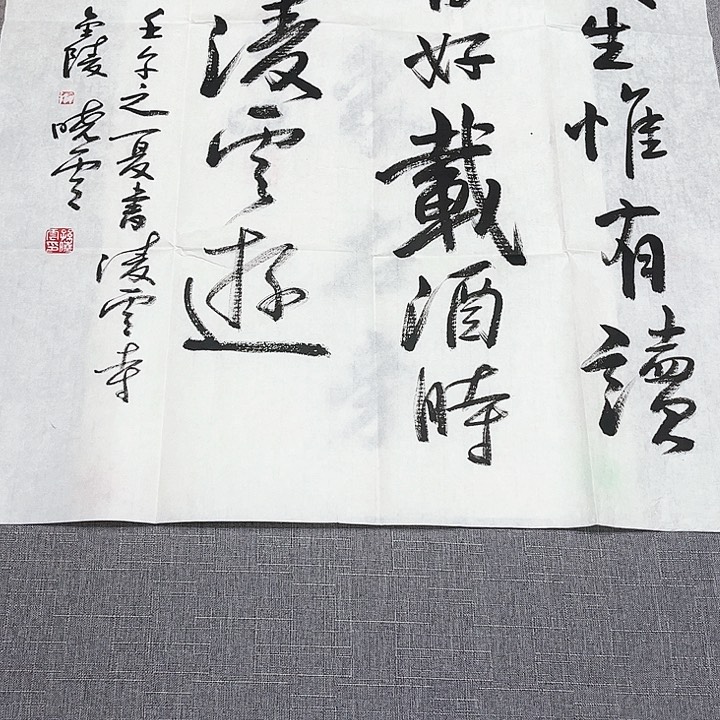 生惟有讀
好載酒時
凌雲遊
壬午之夏書凌雲寺
金陵 晓雲